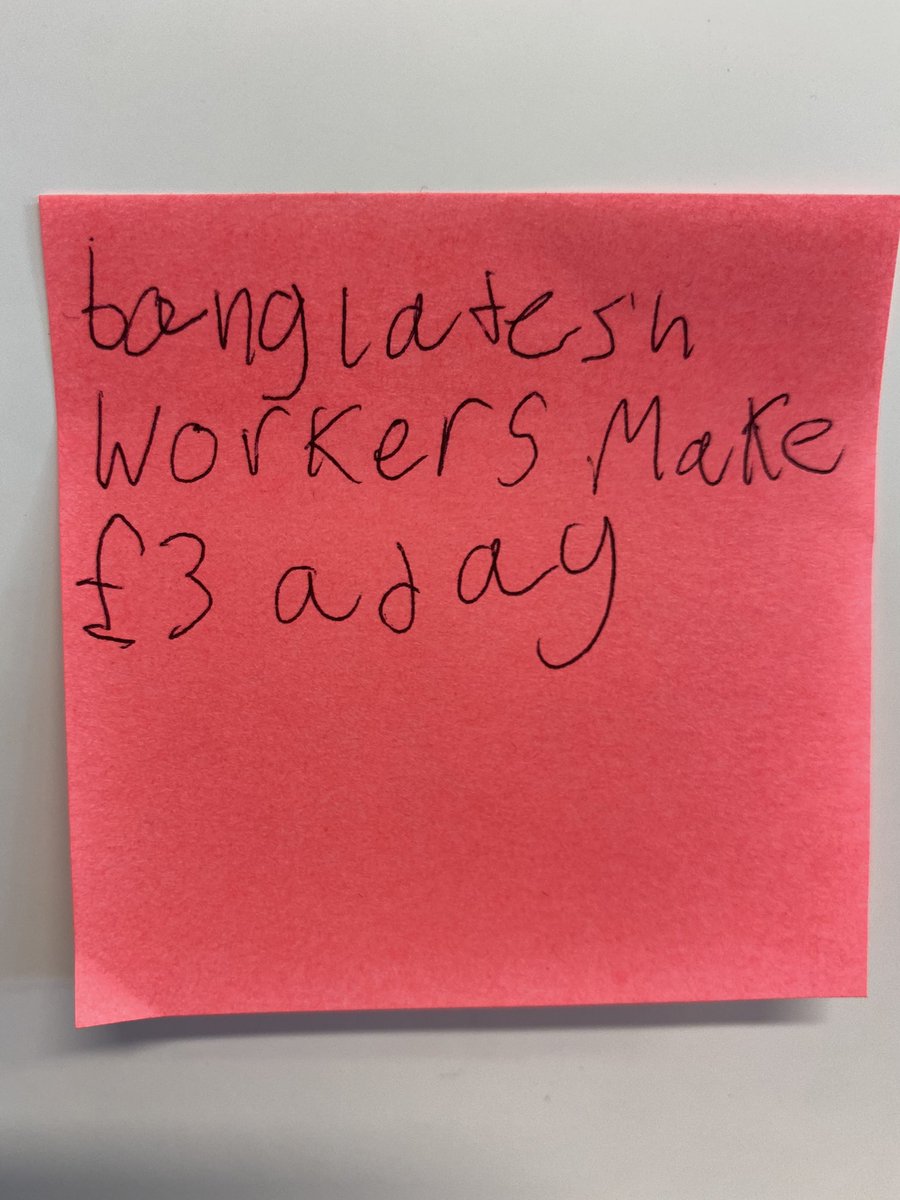 banglatesh
workers Make
£3 a day